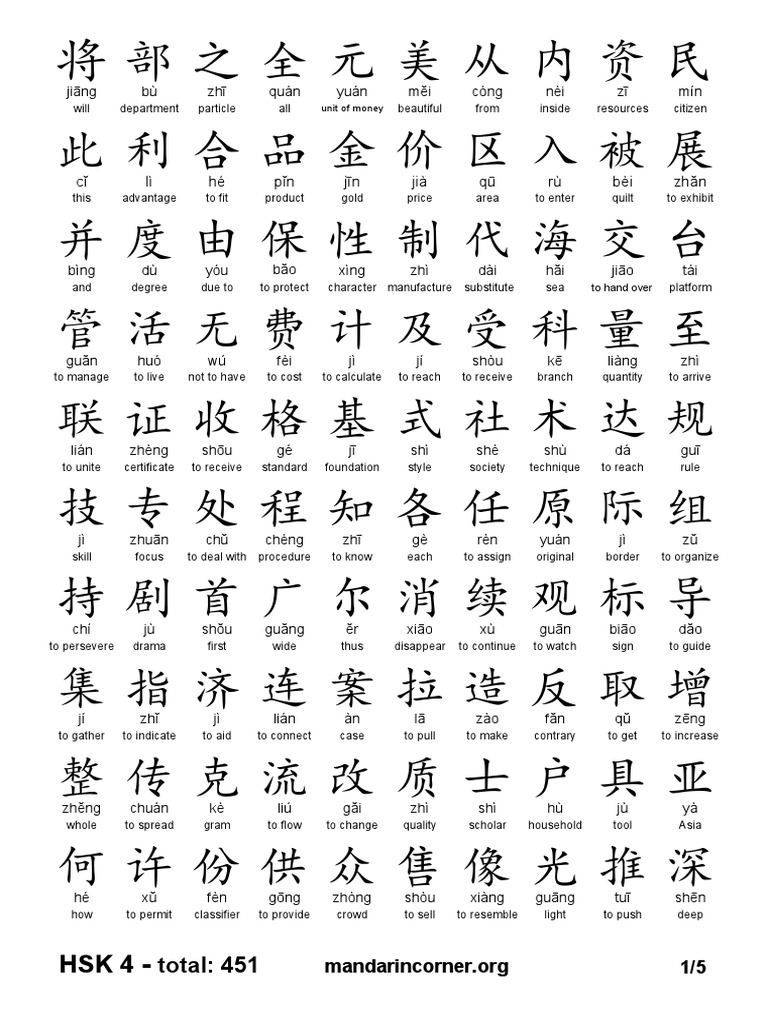 将 部 之 全 元 美 从 内 资 民
jiāng bù zhī quán yuán měi cóng nèi zī mín
will department particle all unit of money beautiful from inside resources citizen
此 利 合 品 金 价 区 入 被 展
cǐ lì hé pǐn jīn jià qū rù bèi zhǎn
this advantage to fit product gold price area to enter quilt to exhibit
并 度 由 保 性 制 代 海 交 台
bìng dù yóu bǎo xìng zhì dài hǎi jiāo tái
and degree due to to protect character manufacture substitute sea to hand over platform
管 活 无 费 计 及 受 科 量 至
guǎn huó wú fèi jì jí shòu kē liàng zhì
to manage to live not to have to cost to calculate to reach to receive branch quantity to arrive
联 证 收 格 基 式 社 术 达 规
lián zhèng shōu gé jī shì shè shù dá guī
to unite certificate to receive standard foundation style society technique to reach rule
技 专 处 程 知 各 任 原 际 组
jì zhuān chǔ chéng zhī gè rèn yuán jì zǔ
skill focus to deal with procedure to know each to assign original border to organize
持 剧 首 广 尔 消 续 观 标 导
chí jù shǒu guǎng ěr xiāo xù guān biāo dǎo
to persevere drama first wide thus disappear to continue to watch sign to guide
集 指 济 连 案 拉 造 反 取 增
jí zhǐ jì lián àn lā zào fǎn qǔ zēng
to gather to indicate to aid to connect case to pull to make contrary to get to increase
整 传 克 流 改 质 士 户 具 亚
zhěng chuán kè liú gǎi zhì shì hù jù yà
whole to spread gram to flow to change quality scholar household tool Asia
何 许 份 供 众 售 像 光 推 深
hé xǔ fèn gōng zhòng shòu xiàng guāng tuī shēn
how to permit classifier to provide crowd to sell to resemble light to push deep
HSK 4 - total: 451 mandarincorner.org 1/5